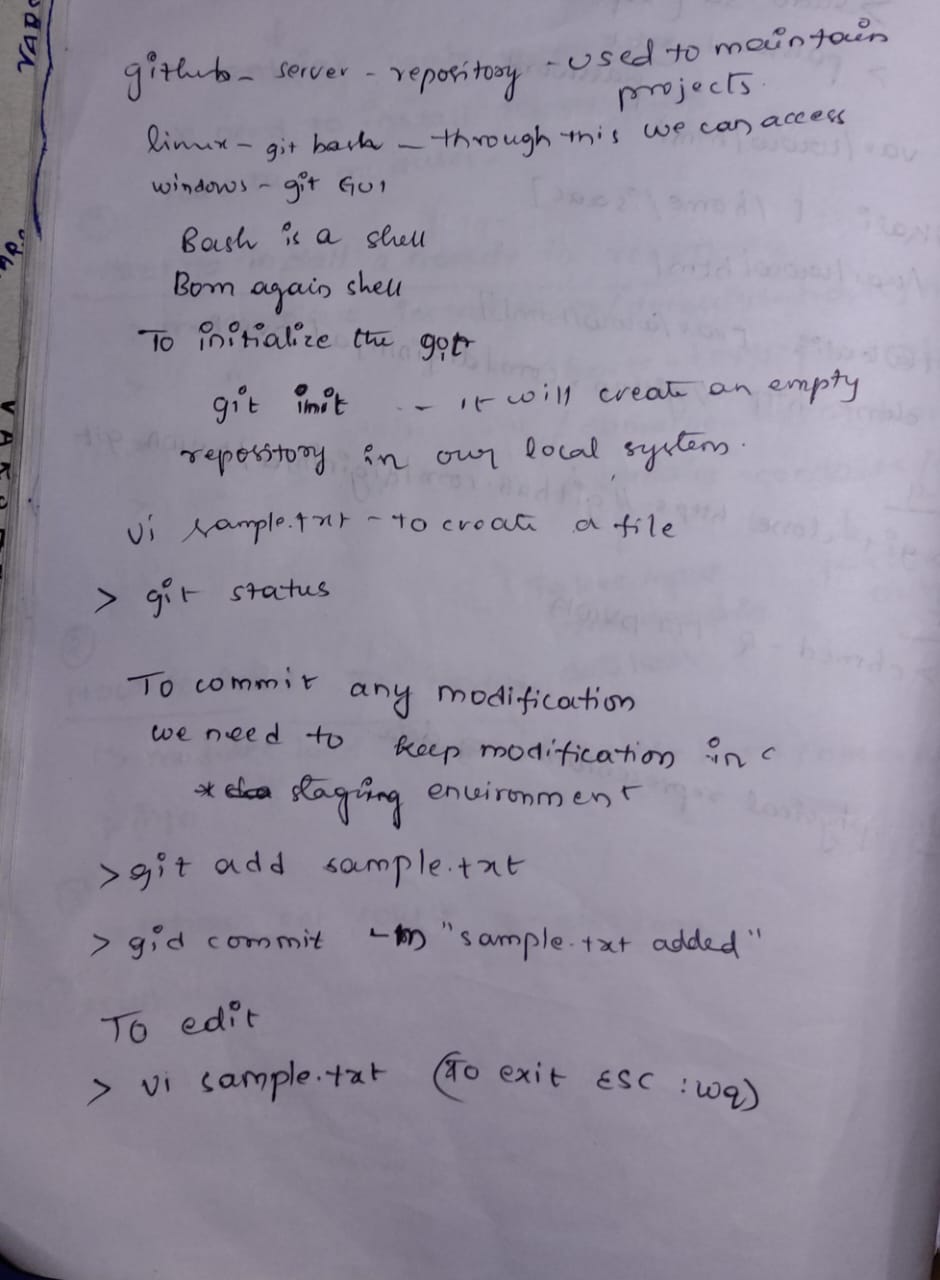 github - server - repository - used to maintain
projects.
linux - git bash - through this we can access
windows - git GUI
Bash is a shell
Born again shell
To initialize the git
git init - it will create an empty
repository in our local system.
vi sample.txt - to create a file
> git status
To commit any modification
we need to keep modification in
* staging environment
> git add sample.txt
> gid commit -m "sample.txt added"
To edit
> vi sample.txt (To exit ESC :wq)